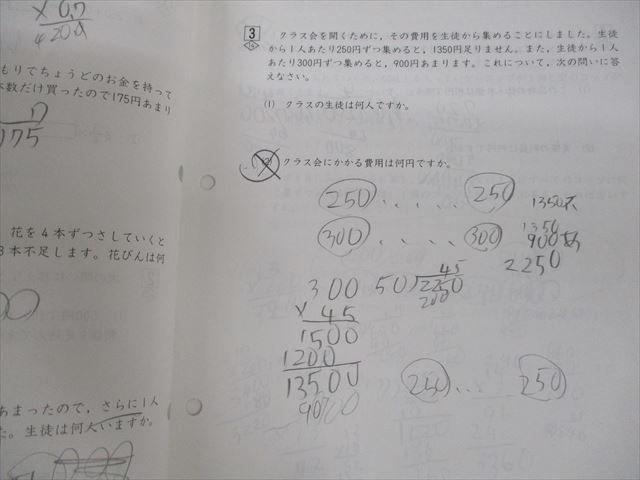 × 0.7
420
もりでちょうどのお金を持って
本数だけ買ったので175円あまり
175
花を4本ずつさしていくと
3本不足します。花びんは何
あまったので，さらに1人
た。生徒は何人いますか。
3
クラス会を開くために，その費用を生徒から集めることにしました。生徒
から1人あたり250円ずつ集めると，1350円足りません。また，生徒から1人
あたり300円ずつ集めると，900円あまります。これについて，次の問いに答
えなさい。
(1) クラスの生徒は何人ですか。
(2) クラス会にかかる費用は何円ですか。
250 . . . . . 250 1350不
300 . . . . 300
1350
900あ
2250
300
× 45
1500
1200
13500
900
45
50)2250
200
250 . . . 250